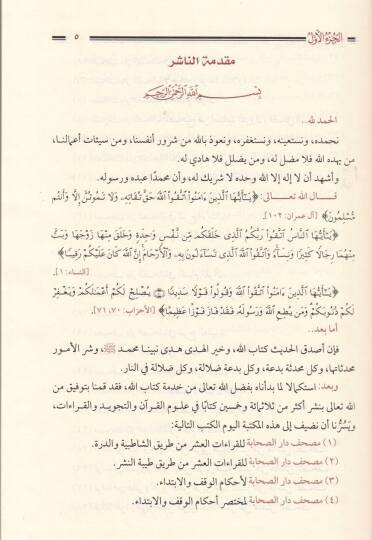 الجزء الأول
٥
مقدمة الناشر
بسم الله الرحمن الرحيم
الحمد لله..
نحمده، ونستعينه، ونستغفره، ونعوذ بالله من شرور أنفسنا، ومن سيئات أعمالنا،
من يهده الله فلا مضل له، ومن يضلل فلا هادي له.
وأشهد أن لا إله إلا الله وحده لا شريك له، وأن محمدًا عبده ورسوله.
قـال الله تعـالى: ﴿يَـٰٓأَيُّهَا ٱلَّذِينَ ءَامَنُوا۟ ٱتَّقُوا۟ ٱللَّهَ حَقَّ تُقَاتِهِۦ وَلَا تَمُوتُنَّ إِلَّا وَأَنتُم
مُّسْلِمُونَ﴾ [آل عمران: ١٠٢].
﴿يَـٰٓأَيُّهَا ٱلنَّاسُ ٱتَّقُوا۟ رَبَّكُمُ ٱلَّذِى خَلَقَكُم مِّن نَّفْسٍ وَٰحِدَةٍ وَخَلَقَ مِنْهَا زَوْجَهَا وَبَثَّ
مِنْهُمَا رِجَالًا كَثِيرًا وَنِسَآءً وَٱتَّقُوا۟ ٱللَّهَ ٱلَّذِى تَسَآءَلُونَ بِهِۦ وَٱلْأَرْحَامَ إِنَّ ٱللَّهَ كَانَ عَلَيْكُمْ رَقِيبًا﴾
[النساء: ١].
﴿يَـٰٓأَيُّهَا ٱلَّذِينَ ءَامَنُوا۟ ٱتَّقُوا۟ ٱللَّهَ وَقُولُوا۟ قَوْلًا سَدِيدًا ۝ يُصْلِحْ لَكُمْ أَعْمَـٰلَكُمْ وَيَغْفِرْ
لَكُمْ ذُنُوبَكُمْ وَمَن يُطِعِ ٱللَّهَ وَرَسُولَهُۥ فَقَدْ فَازَ فَوْزًا عَظِيمًا﴾ [الأحزاب: ٧٠، ٧١].
أما بعد..
فإن أصدق الحديث كتاب الله، وخير الهدى هدى نبينا محمد ﷺ، وشر الأمور
محدثاتها، وكل محدثة بدعة، وكل بدعة ضلالة، وكل ضلالة في النار.
وبعد: استكمالا لما بدأناه بفضل الله تعالى من خدمة كتاب الله، فقد قمنا بتوفيق من
الله تعالى بنشر أكثر من ثلاثمائة وخمسين كتابًا في علـوم القرآن والتجويـد والقراءات،
ويَسُرُّنا أن نضيف إلى هذه المكتبة اليوم الكتب التالية:
(١) مصحف دار الصحابة للقراءات العشر من طريق الشاطبية والدرة.
(٢) مصحف دار الصحابة للقراءات العشر من طريق طيبة النشر.
(٣) مصحف دار الصحابة لأحكام الوقف والابتداء.
(٤) مصحف دار الصحابة لمختصر أحكام الوقف والابتداء.